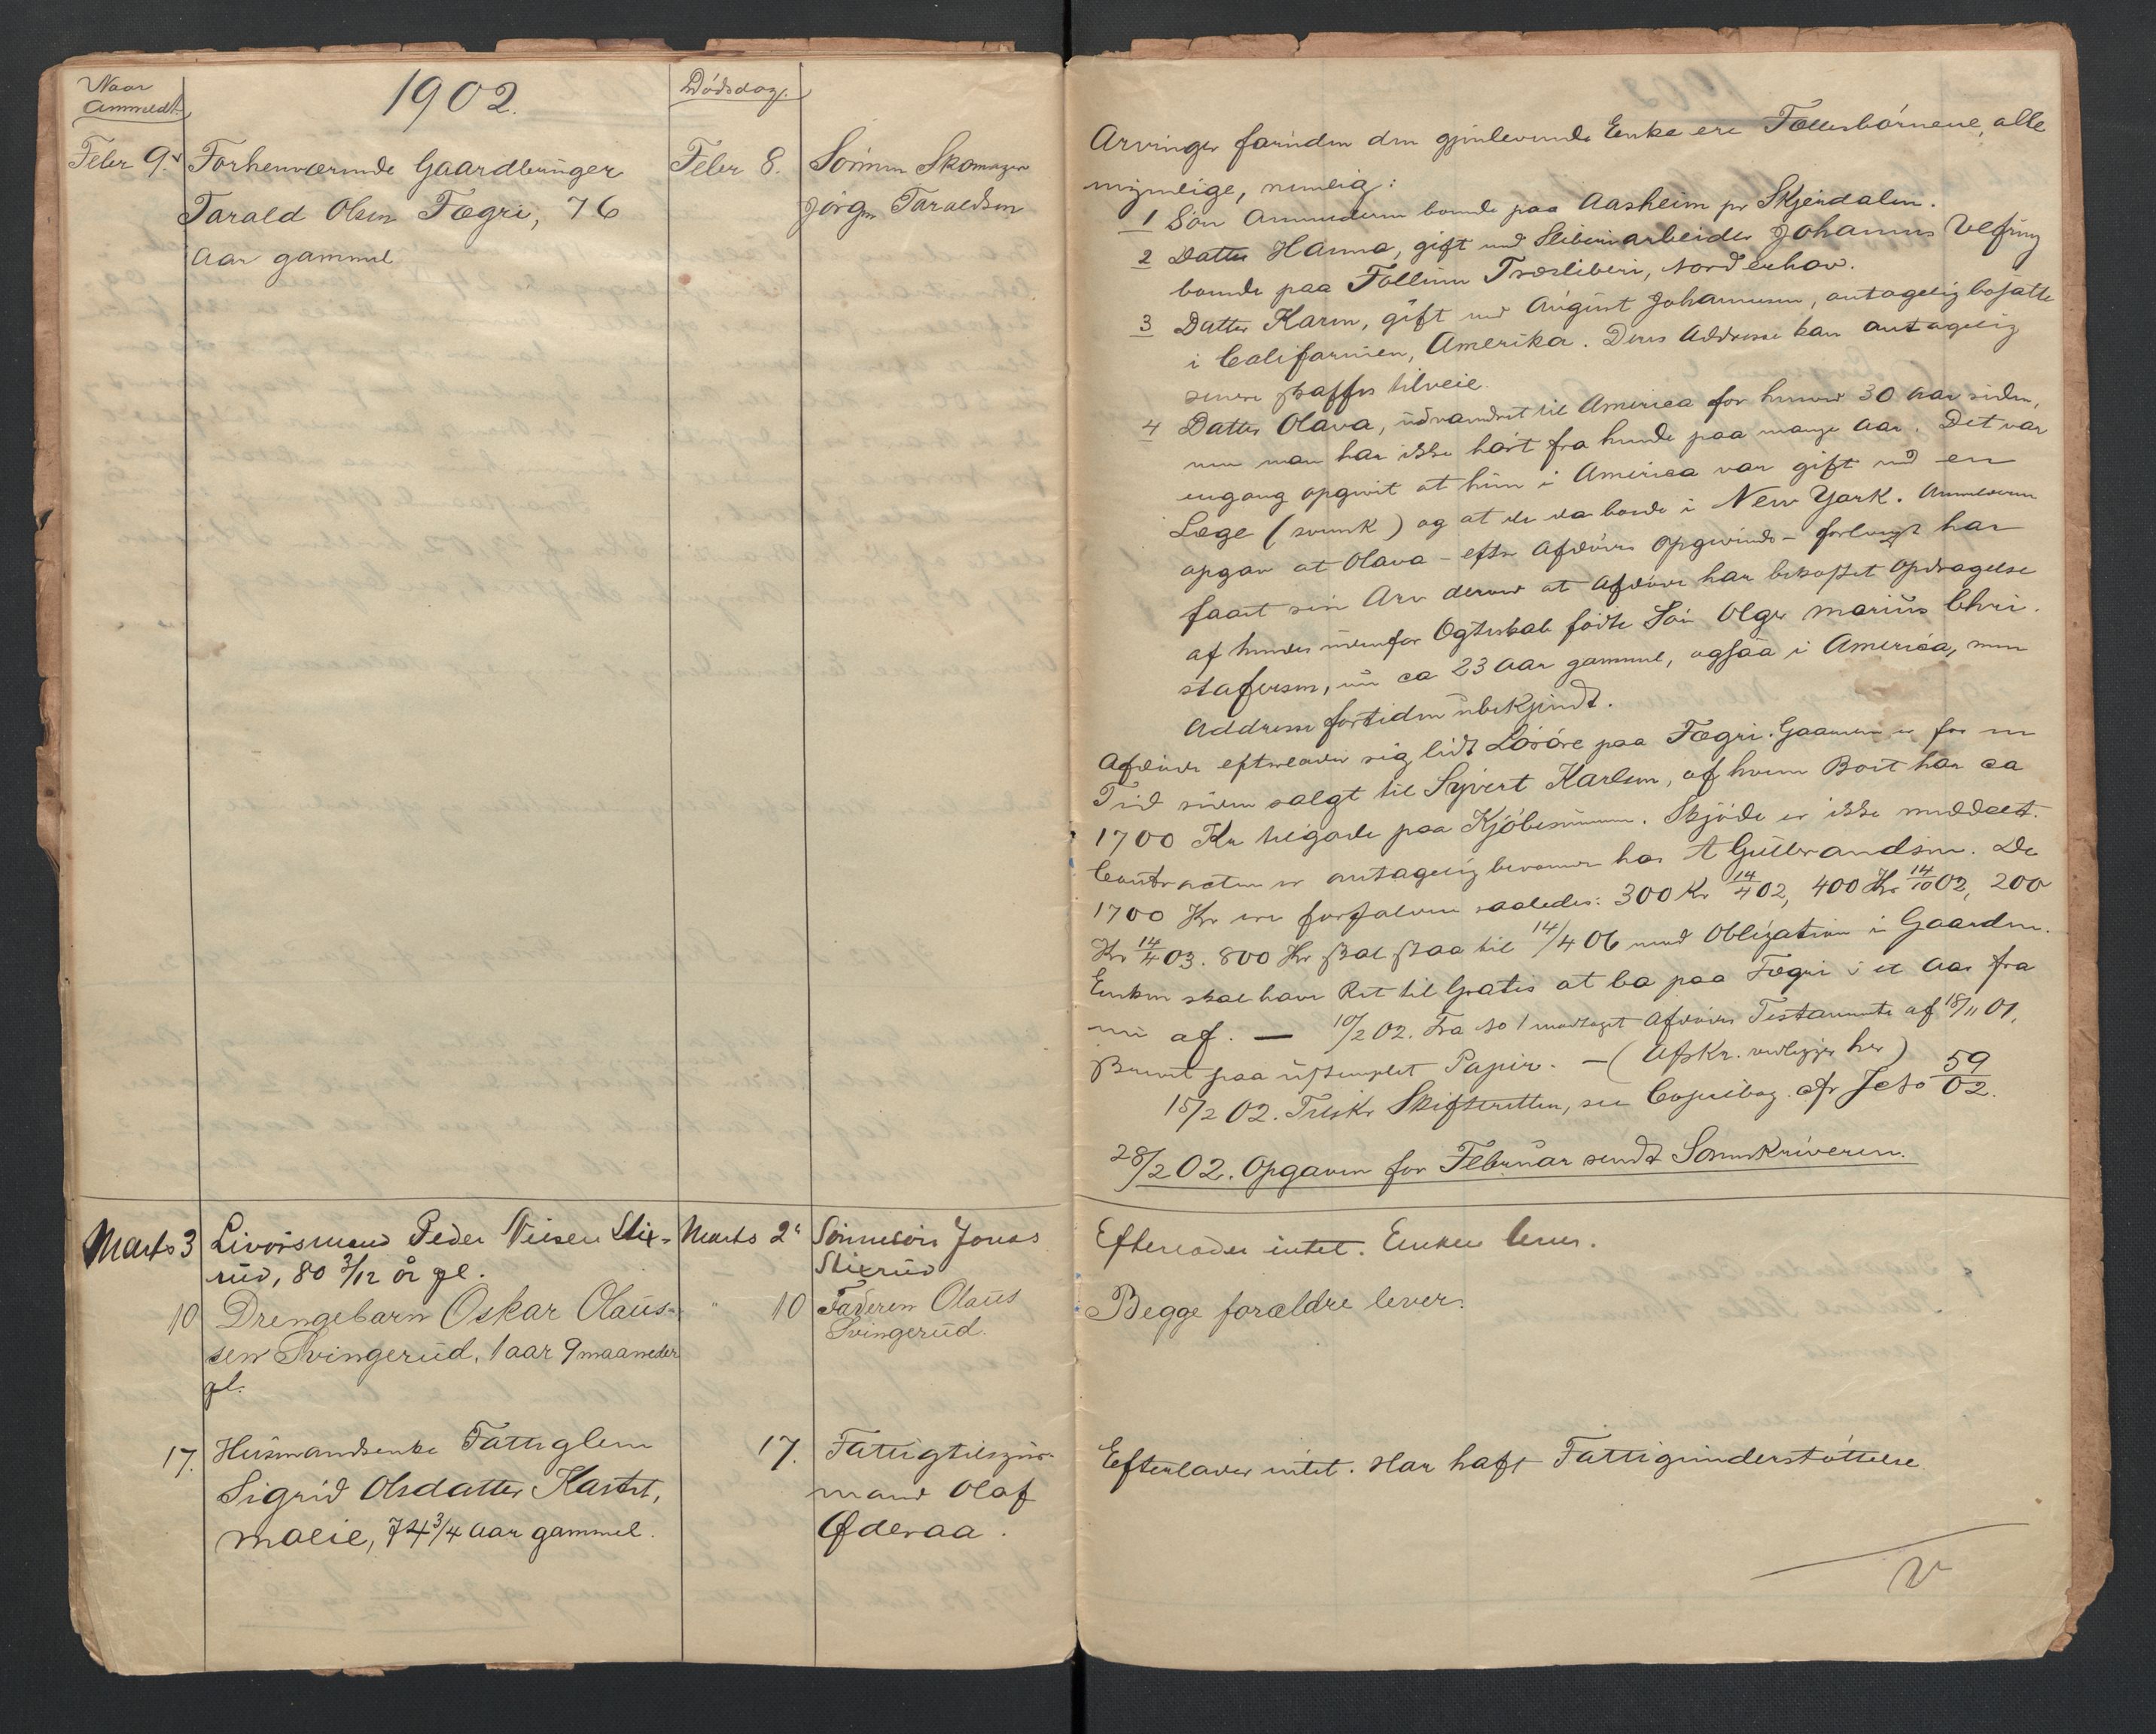 Naar
Anmeldt
1902.
Dødsdag.
Febr 9.
Forhenværende Gaardbruger
Tarald Olsen Fægri, 76
Aar gammel
Febr 8.
Sønnen Skomager
Jørgen Taraldsen
Arvinger foruden den gjenlevende Enke ere Fællesbørnene, alle
myndige, nemlig:
1 Søn Anmelderen boende paa Aasheim pr Skjerdalen.
2 Datter Hanna, gift med Sliberiarbeider Johannes Vefring
boende paa Follum Træsliberi, Norderhov.
3 Datter Karen, gift med August Johannesen, antagelig bosatte
i Californien, Amerika. Deres Addresse kan antagelig
senere skaffes tilveie.
4 Datter Olava, udvandret til America for henved 30 Aar siden,
men man har ikke hørt fra hende paa mange Aar. Det var
engang opgivet at hun i America var gift med en
Læge (svensk) og at de da boede i New York. Anmelderen
opgav at Olava - efter Afdødes Opgivende - forlængst har
faaet sin Arv derved at Afdøde har bekostet Opdragelse
af hendes udenfor Ægteskab fødte Søn Olger Marius Chri-
stofersen, nu ca 23 Aar gammel, ogsaa i America, men
Addresse fortiden ubekjendt.
Afdøde efterlader sig lidt Løsøre paa Fægri. Gaarden er for en
Tid siden solgt til Syvert Karlsen, af hvem Boet har ca
1700 Kr tilgode paa Kjøbesummen. Skjøde er ikke meddelt.
Contracten er antagelig beroende hos A Gulbrandsen. De
1700 Kr ere forfaldne saaledes: 300 Kr 14/4 02, 400 Kr 14/10 02, 200
Kr 14/4 03. 800 Kr skal staa til 14/4 06 mod Obligation i Gaarden.
Enken skal have Ret til Gratis at bo paa Fægri i et Aar fra
nu af. — 10/2 02. Fra No 1 modtaget Afdødes Testamente af 18/11 01,
skrevet paa ustemplet Papir. — (Afskr. vedligger her)
15/2 02. Tilskr Skifteretten, see Copiebog. cfr Jc No 59/02.
28/2 02. Opgaven for Februar sendt Sorenskriveren.
Marts 3
Livørsmand Peder Nilsen Stix-
rud, 80 3/12 år gl.
Marts 2
Sønnesøn Jonas
Stixrud
Efterlader intet. Enken lever.
10
Drengebarn Oskar Olaus-
sen Svingerud, 1 aar 9 maaneder
gl.
" 10
Faderen Olaus
Svingerud.
Begge forældre lever.
17.
Husmandsenke Fattiglem
Sigrid Olsdatter
moeie, 74 3/4 Aar gammel.
17.
Fattigtilsyns-
mand Olaf
Øderaa.
Efterlader intet. Har haft Fattigunderstøttelse.